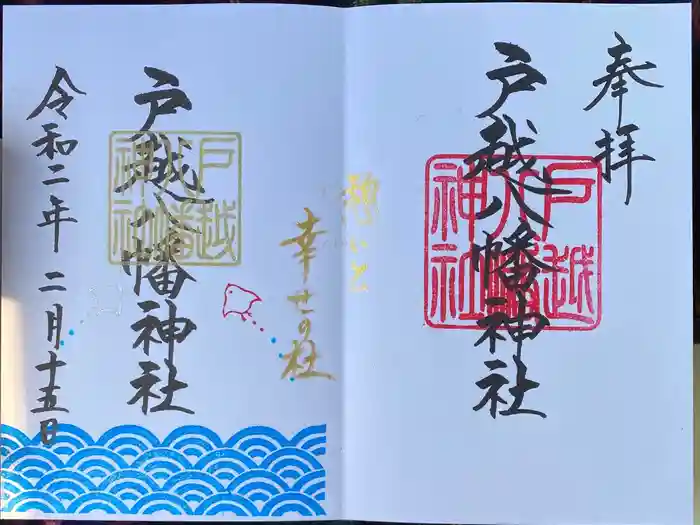 奉拝
戸越八幡神社
戸越八幡神社
憩いと
幸せの杜
戸越八幡神社
戸越八幡神社
令和二年 二月十五日